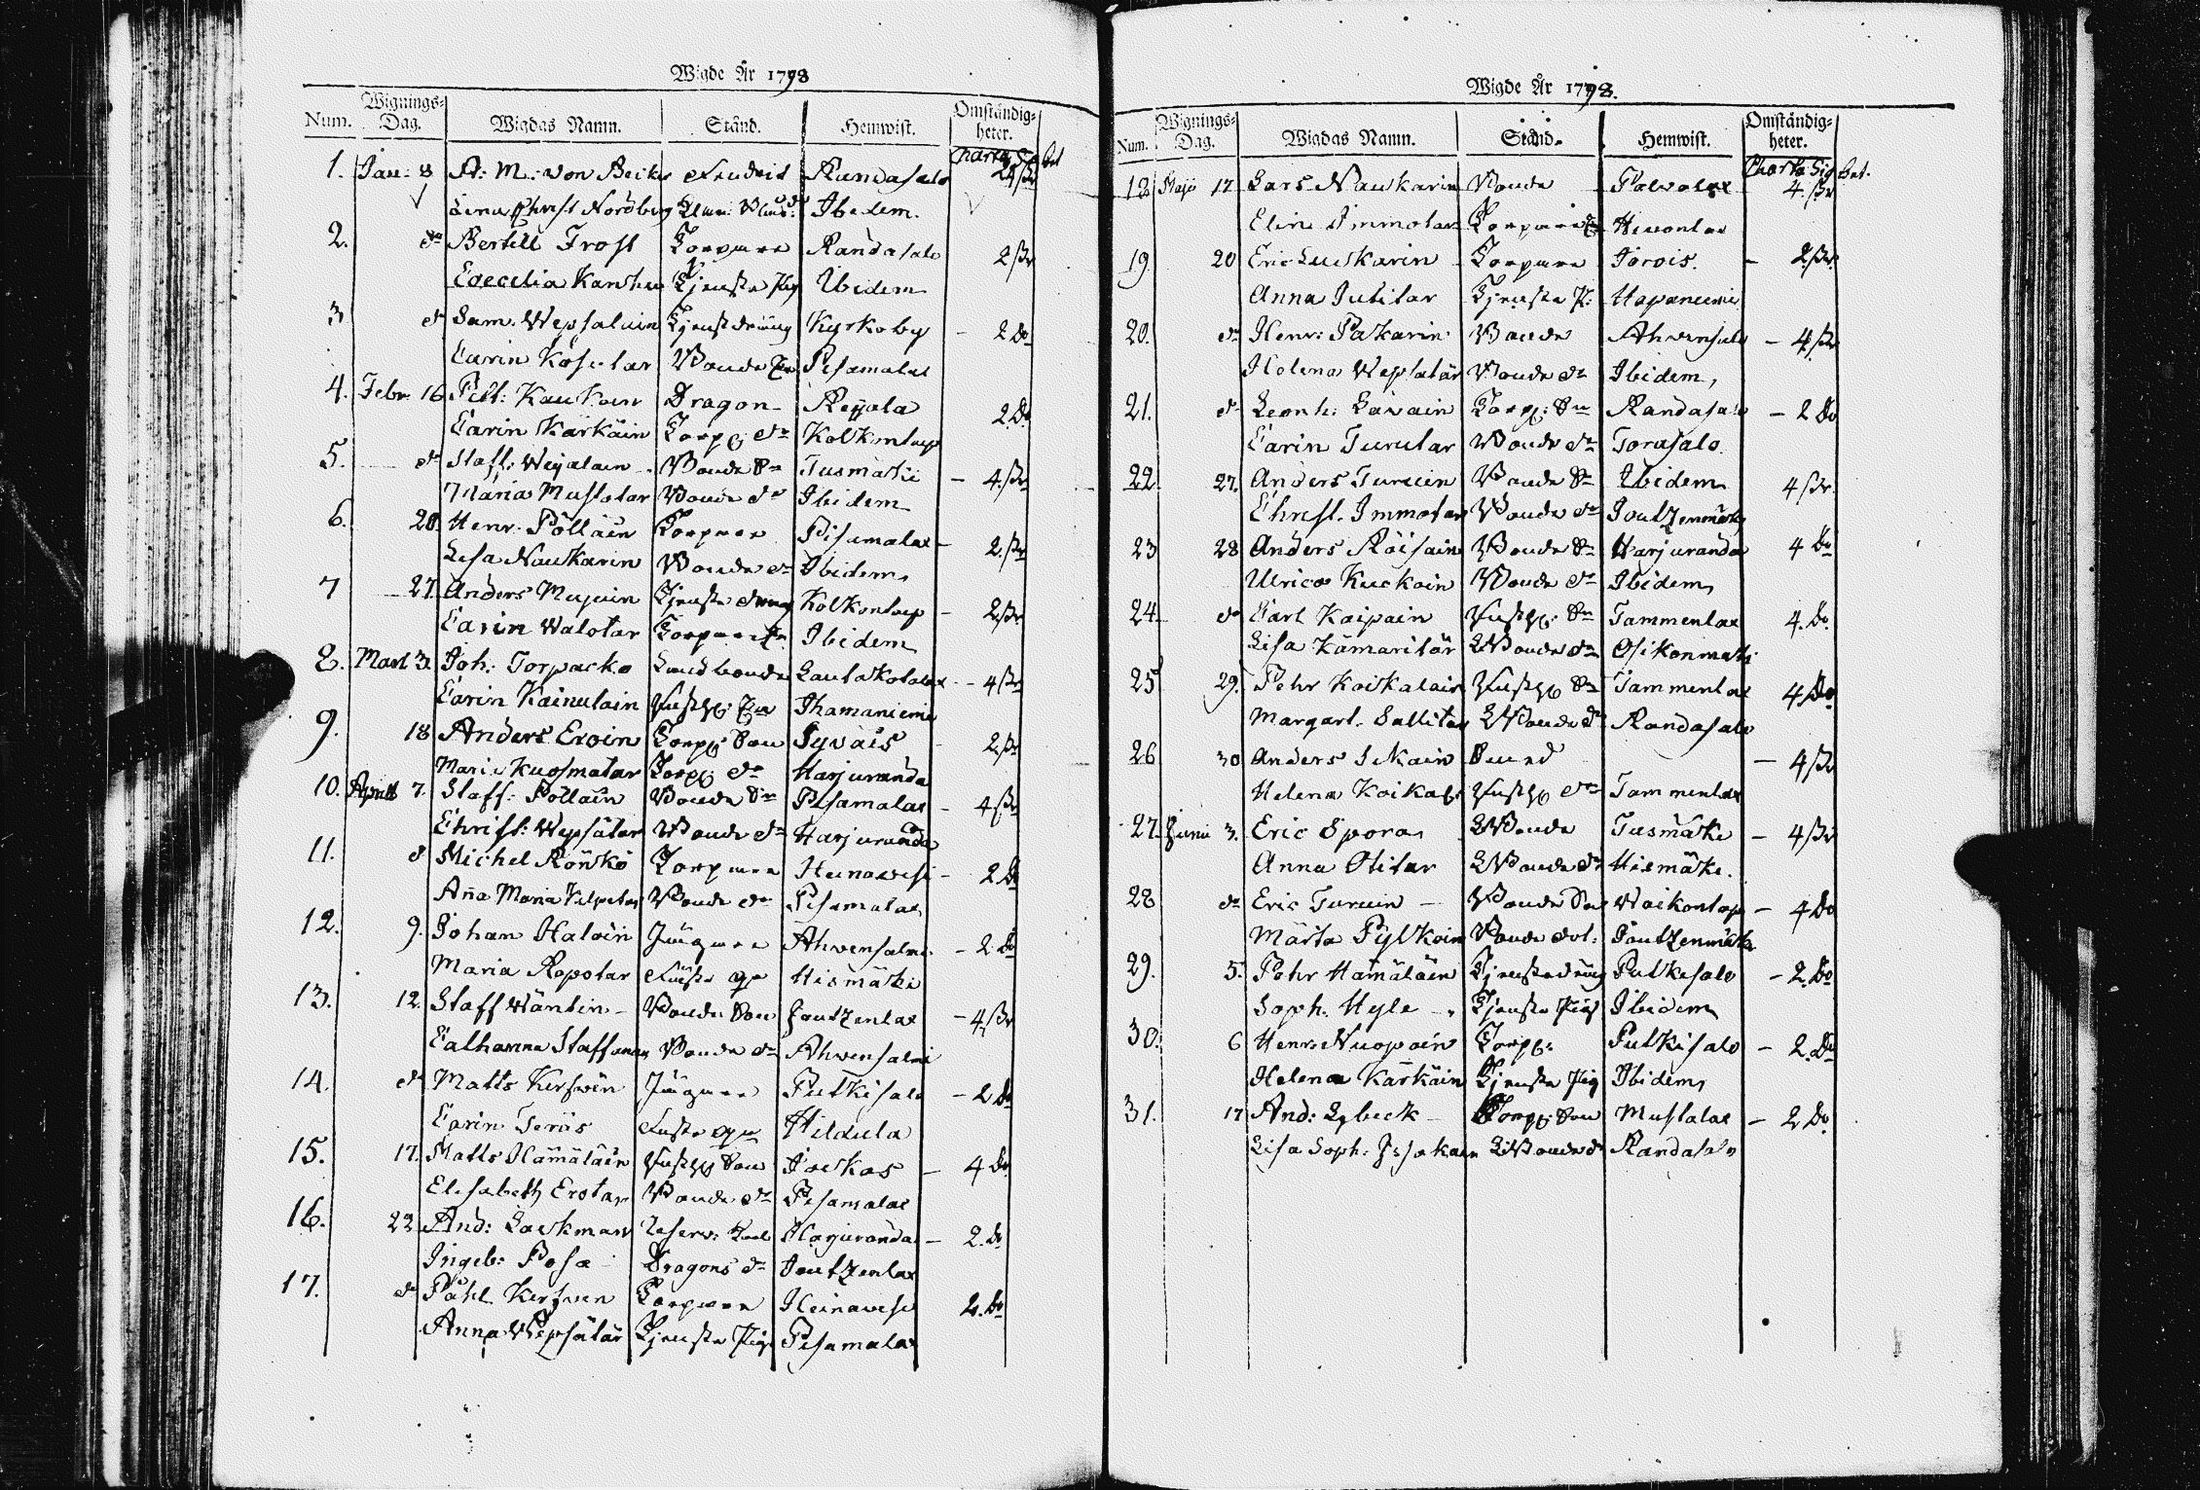 Wigde År 1798
Num. Wignings-Dag. Wigdas Namn. Stånd. Hemwist. Omständigheter.
Charta Sig. bet
1. Jan: 8 A: M: von Becker Randasalo 24 ßr
Lena Christ Nordberg Ibidem.
2. do Bertill Frost Torpare Randasalo 2 ßr
Caecilia Karsten Tjensta Pig Ibidem
3 do Sam. Wepsaluin Tjenstdräng Kyrkoby - 2 Do
Carin Kosutar Bonde Pisamalax
4. Febr 16 Pett: Kaukain Dragon Reijola 2 Do
Carin Kärkäin Torp: dr Kolkontaip
5. do Staff: Weijalain Bonde Sn Tusmäki - 4. ßr
Maria Mustotar Bonde dr Ibidem
6. 20. Henr. Pölläin Torpare Pisamalax - 2. ßr
Lisa Naukarin Bonde dr Ibidem
7 27. Anders Mujuin Tjenste dräng Kolkontaip - 2 ßr
Carin Walotar Torpare dr Ibidem
8. Mart 3. Joh: Torpacko Landbonde Lautakotalax - 4 ßr
Carin Kainulain Ihamaniemi
9. 18 Anders Eroin Torp: Son Syväis 2 ßr
Maria Kuosmatar Torp: dr Harjuranda
10. Aprill 7. Staff: Pölläin Bonde Sn Pisamalax - 4 ßr
Christ: Wepsätar Bonde dr Harjuranda
11. d Michel Rönkö Torpare Heinawesi - 2 Do
Aña Maria Kilpetar Bonde dr Pisamalax
12. 9. Johan Haloin Ahvensalmi - 2 Do
Maria Ropotar Hismäki
13. 12. Staff Wäntin - Bonde Son Joutzenlax - 4 ßr
Catharina Staffanan Bonde dr Ahvensalmi
14. do Matts Kerswin Putkisalo - 2 Do
Carin Teräs Hildula
15. 17. Matts Hämäläin Son Joekas - 4 Do
Elisabeth Erotar Bonde dr Pisamalax
16. 22. And: Lackman Reserv: Karl Harjuranda - 2. Do
Ingeb: Posa Dragons dr Joutzenlax
17. do Påhl Kerswen Torpare Heinavesi 2. Do
Anna Wepsätär Tjensta Piga Pisamalax
Wigde År 1798.
Num. Wignings-Dag. Wigdas Namn. Stånd. Hemwist. Omständigheter.
Charta Sig. bet.
18 Maji 17 Lars Naukarin Bonde 4. ßr
Elin Immotar Torpare dr Hevonlax
19. 20 Eric Luckarin Torpare Jorois. - 2 ßr.
Anna Jutitar Tjensta P: Haponiemi
20. do Henr: Pakarin Bonde Ahvensalo - 4 ßr
Helena Wepsätär Bonde dr Ibidem,
21. do Leonh: Lavain Torp: Sn Randasalo - 2 Do
Carin Turutar Bonde dr Torasalo.
22. 27. Anders Turuin Bonde Sn Ibidem 4 ßr.
Christ. Immotar Bonde dr Joutzenmäki
23 28 Anders Röisain Bonde Sn Harjuranda 4 Do
Ulrica Kuckoin Bonde dr Ibidem
24. do Carl Kaipain Sn Tammenlax 4. Do.
Lisa Kämäritär LBonde dr Osikonmäki
25 29. Pehr Koikalain Sn Tammenlax 4 Do
Margart. Sallitar LBonde dr Randasalo
26 30 Anders Ickain - 4 ßr
Helena Koikal: dr Tammenlax
27. Junii 3. Eric Spora LBonde Tusmäki - 4 ßr
Anna Otitar LBonde dr Hismäki.
28 do Eric Turuin - Bonde Son Waikontaip - 4 Do
Märta Pylkoin Bonde dot: Joutzenmäki
29. 5. Pehr Hämäläin Tjenstedräng Putkisalo - 2. Do
Soph. Hyle Tjensta Piga Ibidem
30. 6 Henr: Nuopoin Torp: Putkisalo - 2. Do
Helena Karkäin Tjensta Pig Ibidem,
31. 17 And: Lybeck Torp: Son Mustalax - 2 Do.
Lisa Soph: LBonde dr Randasalo